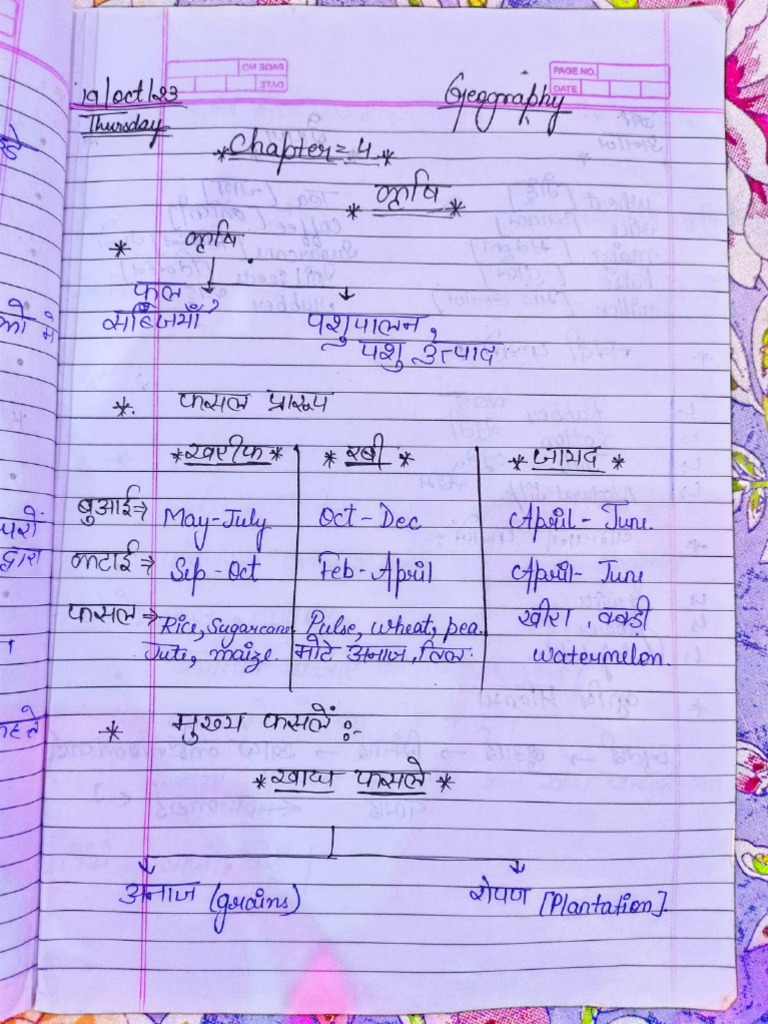 PAGE NO.
DATE
19/oct/23 Geography
Thursday
*Chapter = 4*
* कृषि *
* कृषि
फल
सब्जियाँ पशुपालन,
पशु उत्पाद
*. फसल प्रारूप
*खरीफ* * रबी * * जायद *
बुआई→ May-July Oct-Dec April-June.
कटाई→ Sep-Oct Feb-April April-June
फसल→ Rice, Sugarcane Pulse, wheat, pea. खीरा ककड़ी
Jute, maize. मोटे अनाज, तिल watermelon.
* मुख्य फसलें :-
*खाद्य फसले *
अनाज (grains) रोपण [Plantation].